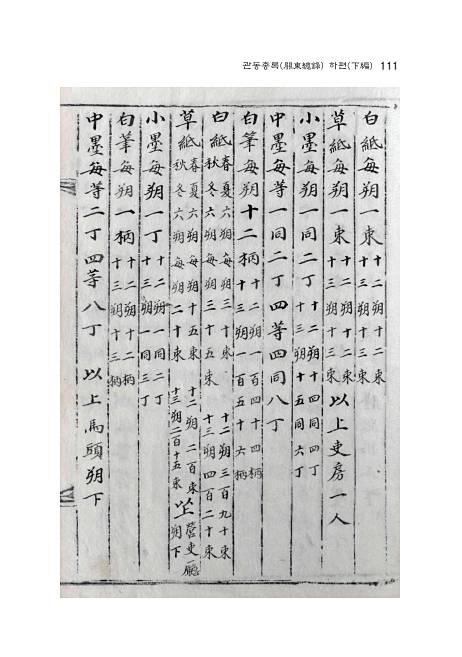 관동총록(關東總錄) 하편(下編) 111
白紙每朔一束 十二朔十二束 十三朔十三束
草紙每朔一束 十二朔十二束 十三朔十三束 以上吏房一人
小墨每朔一同二丁 十二朔十四同四丁 十三朔十五同六丁
中墨每等一同二丁四等四同八丁
白筆每朔十二柄 十二朔一百四十四柄 十三朔一百五十六柄
白紙 春夏六朔每朔三十束 秋冬六朔每朔三十五束 十二朔三百九十束 十三朔四百二十束
草紙 春夏六朔每朔十五束 秋冬六朔每朔二十束 十二朔二百束 十三朔二百十五束 以上營吏廳朔下
小墨每朔一丁 十二朔一同二丁 十三朔一同三丁
白筆每朔一柄 十二朔十二柄 十三朔十三柄
中墨每等二丁四等八丁 以上馬頭朔下